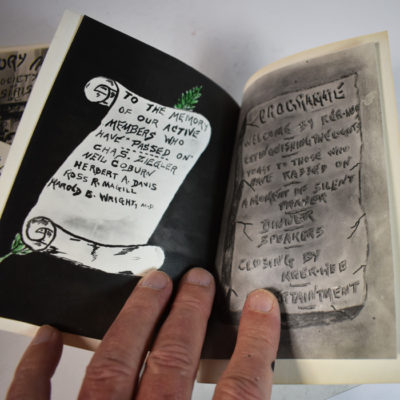 TO THE MEMORY
OF OUR ACTIVE
MEMBERS WHO
HAVE PASSED ON
CHAS. ZIEGLER
NEIL COBURN
HERBERT A. DAVIS
ROSS R. MAGILL
HAROLD E. WRIGHT, M.D.
PROGRAMME
WELCOME BY KER-WEB
EXTINGUISHING THE LIGHTS
TOAST TO THOSE WHO
HAVE PASSED ON
A MOMENT OF SILENT
PRAYER
DINNER
SPEAKERS
CLOSING BY
KHER-HEB